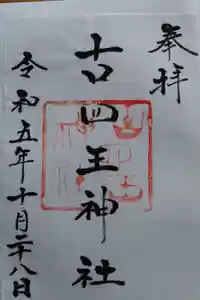 奉拝
古四王神社
令和五年十月二十八日